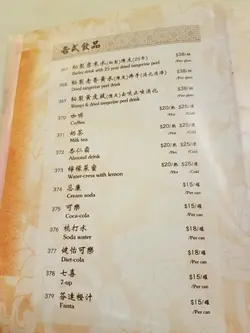 各式飲品
367 秘製薏米水(純製)陳皮(25年) $38/杯
Barley drink with 25 year dried tangerine peel /Per glass
368 $38/杯
Dried tangerine peel drink /Per glass
369 $38/杯
Wampi & dried tangerine peel drink /Per glass
370 咖啡 $20/熱 $25/凍
Coffee /Hot /Cold
371 奶茶 $20/熱 $25/凍
Milk tea /Hot /Cold
372 杏仁霜 $20/熱 $25/凍
Almond drink /Hot /Cold
373 檸檬菜蜜 $20/熱 $25/凍
Water-cress with lemon /Hot /Cold
374 忌廉 $15/罐
Cream soda /Per can
375 可樂 $15/罐
Coca-cola /Per can
376 梳打水 $18/罐
Soda water /Per can
377 健怡可樂 $18/罐
Diet-cola /Per can
378 七喜 $15/罐
7-up /Per can
379 芬達橙汁 $15/罐
Fanta /Per can